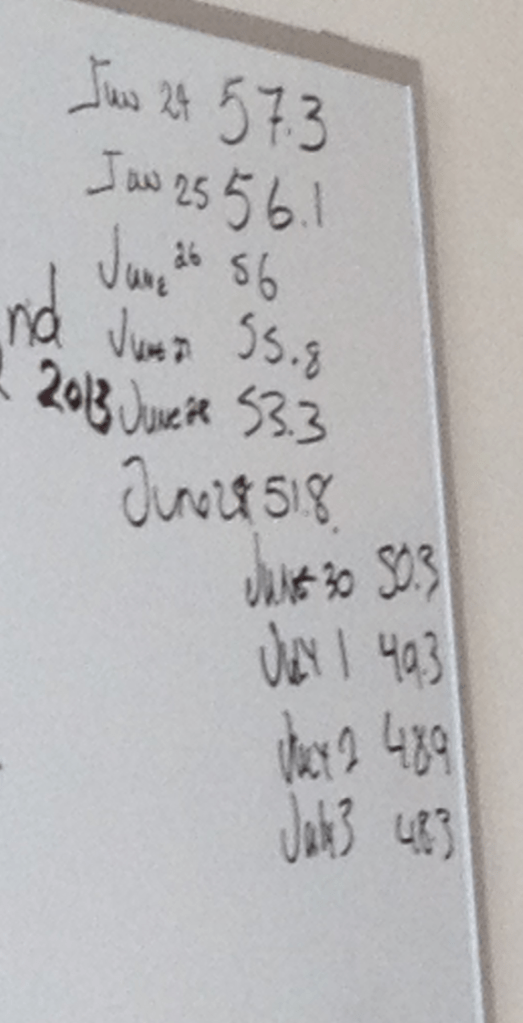 Jun 24 57.3
Jun 25 56.1
June 26 56
nd June 27 55.8
2013 June 28 53.3
June 29 51.8
June 30 50.3
July 1 49.3
July 2 48.9
July 3 48.3